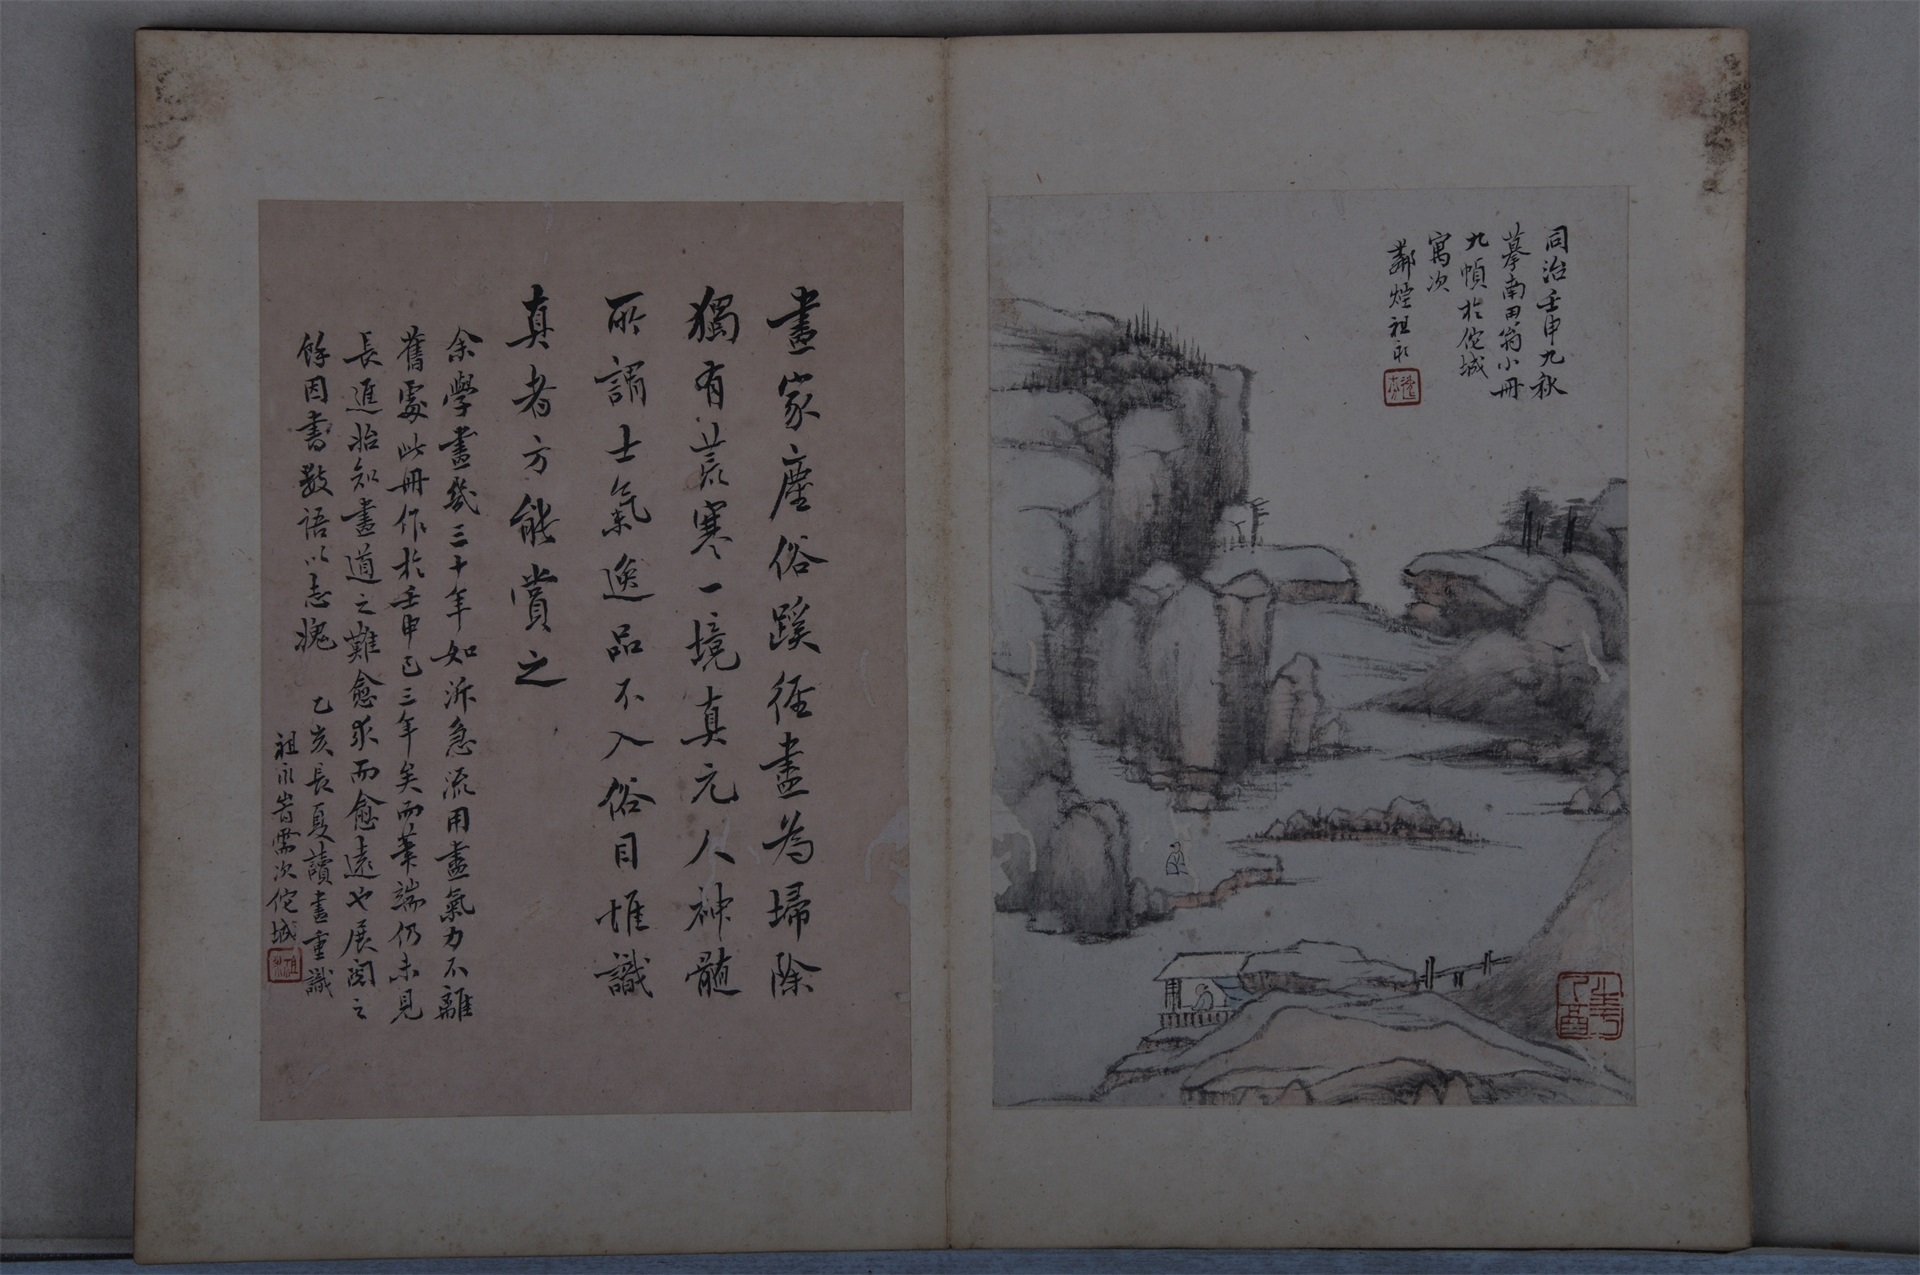 同治壬申九秋
摹南田翁小冊
九幀於佗城
寓次
鄰煙祖永
畫家塵俗蹊徑盡為埽除
獨有荒寒一境真元人神髓
所謂士氣逸品不入俗目惟識
真者方能賞之
余學畫幾三十年如泝急流用盡氣力不離
舊處此冊作於壬申已三年矣而筆端仍未見
長進始知畫道之難愈求而愈遠也展閱之
餘因書數語以志愧
乙亥長夏讀畫重識
祖永皆需次佗城
祖永